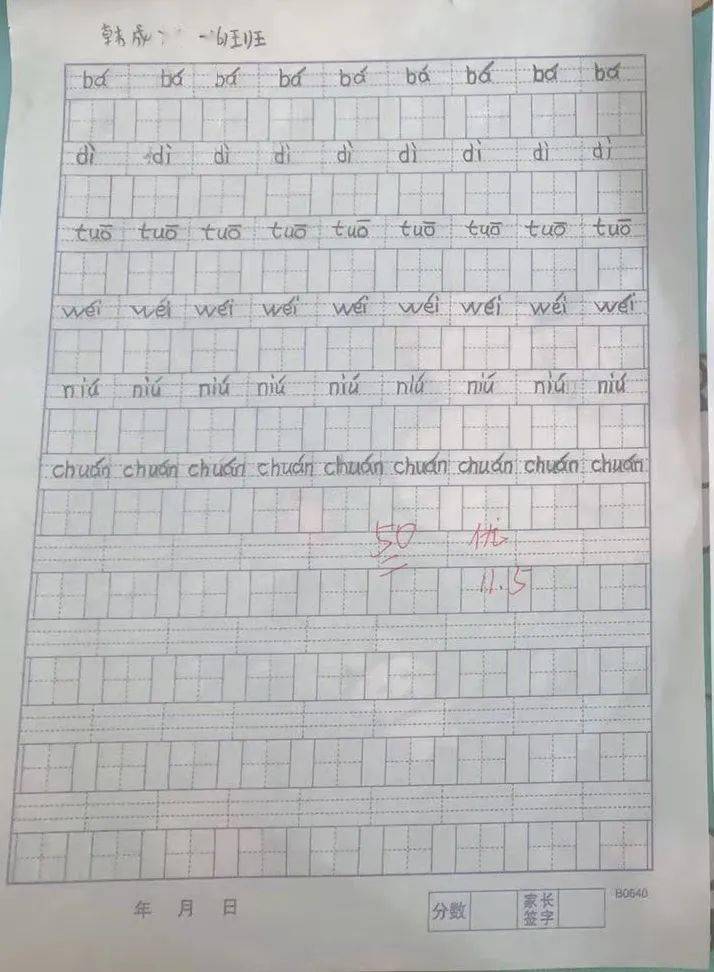 韩成 一6班
bá bá bá bá bá bá bá bá bá
dì dì dì dì dì dì dì dì dì
tuō tuō tuō tuō tuō tuō tuō tuō tuō
wéi wéi wéi wéi wéi wéi wéi wéi wéi
niú niú niú niú niú niú niú niú niú
chuán chuán chuán chuán chuán chuán chuán chuán chuán
50 优
11.5
年 月 日 分数 家长签字 B0640